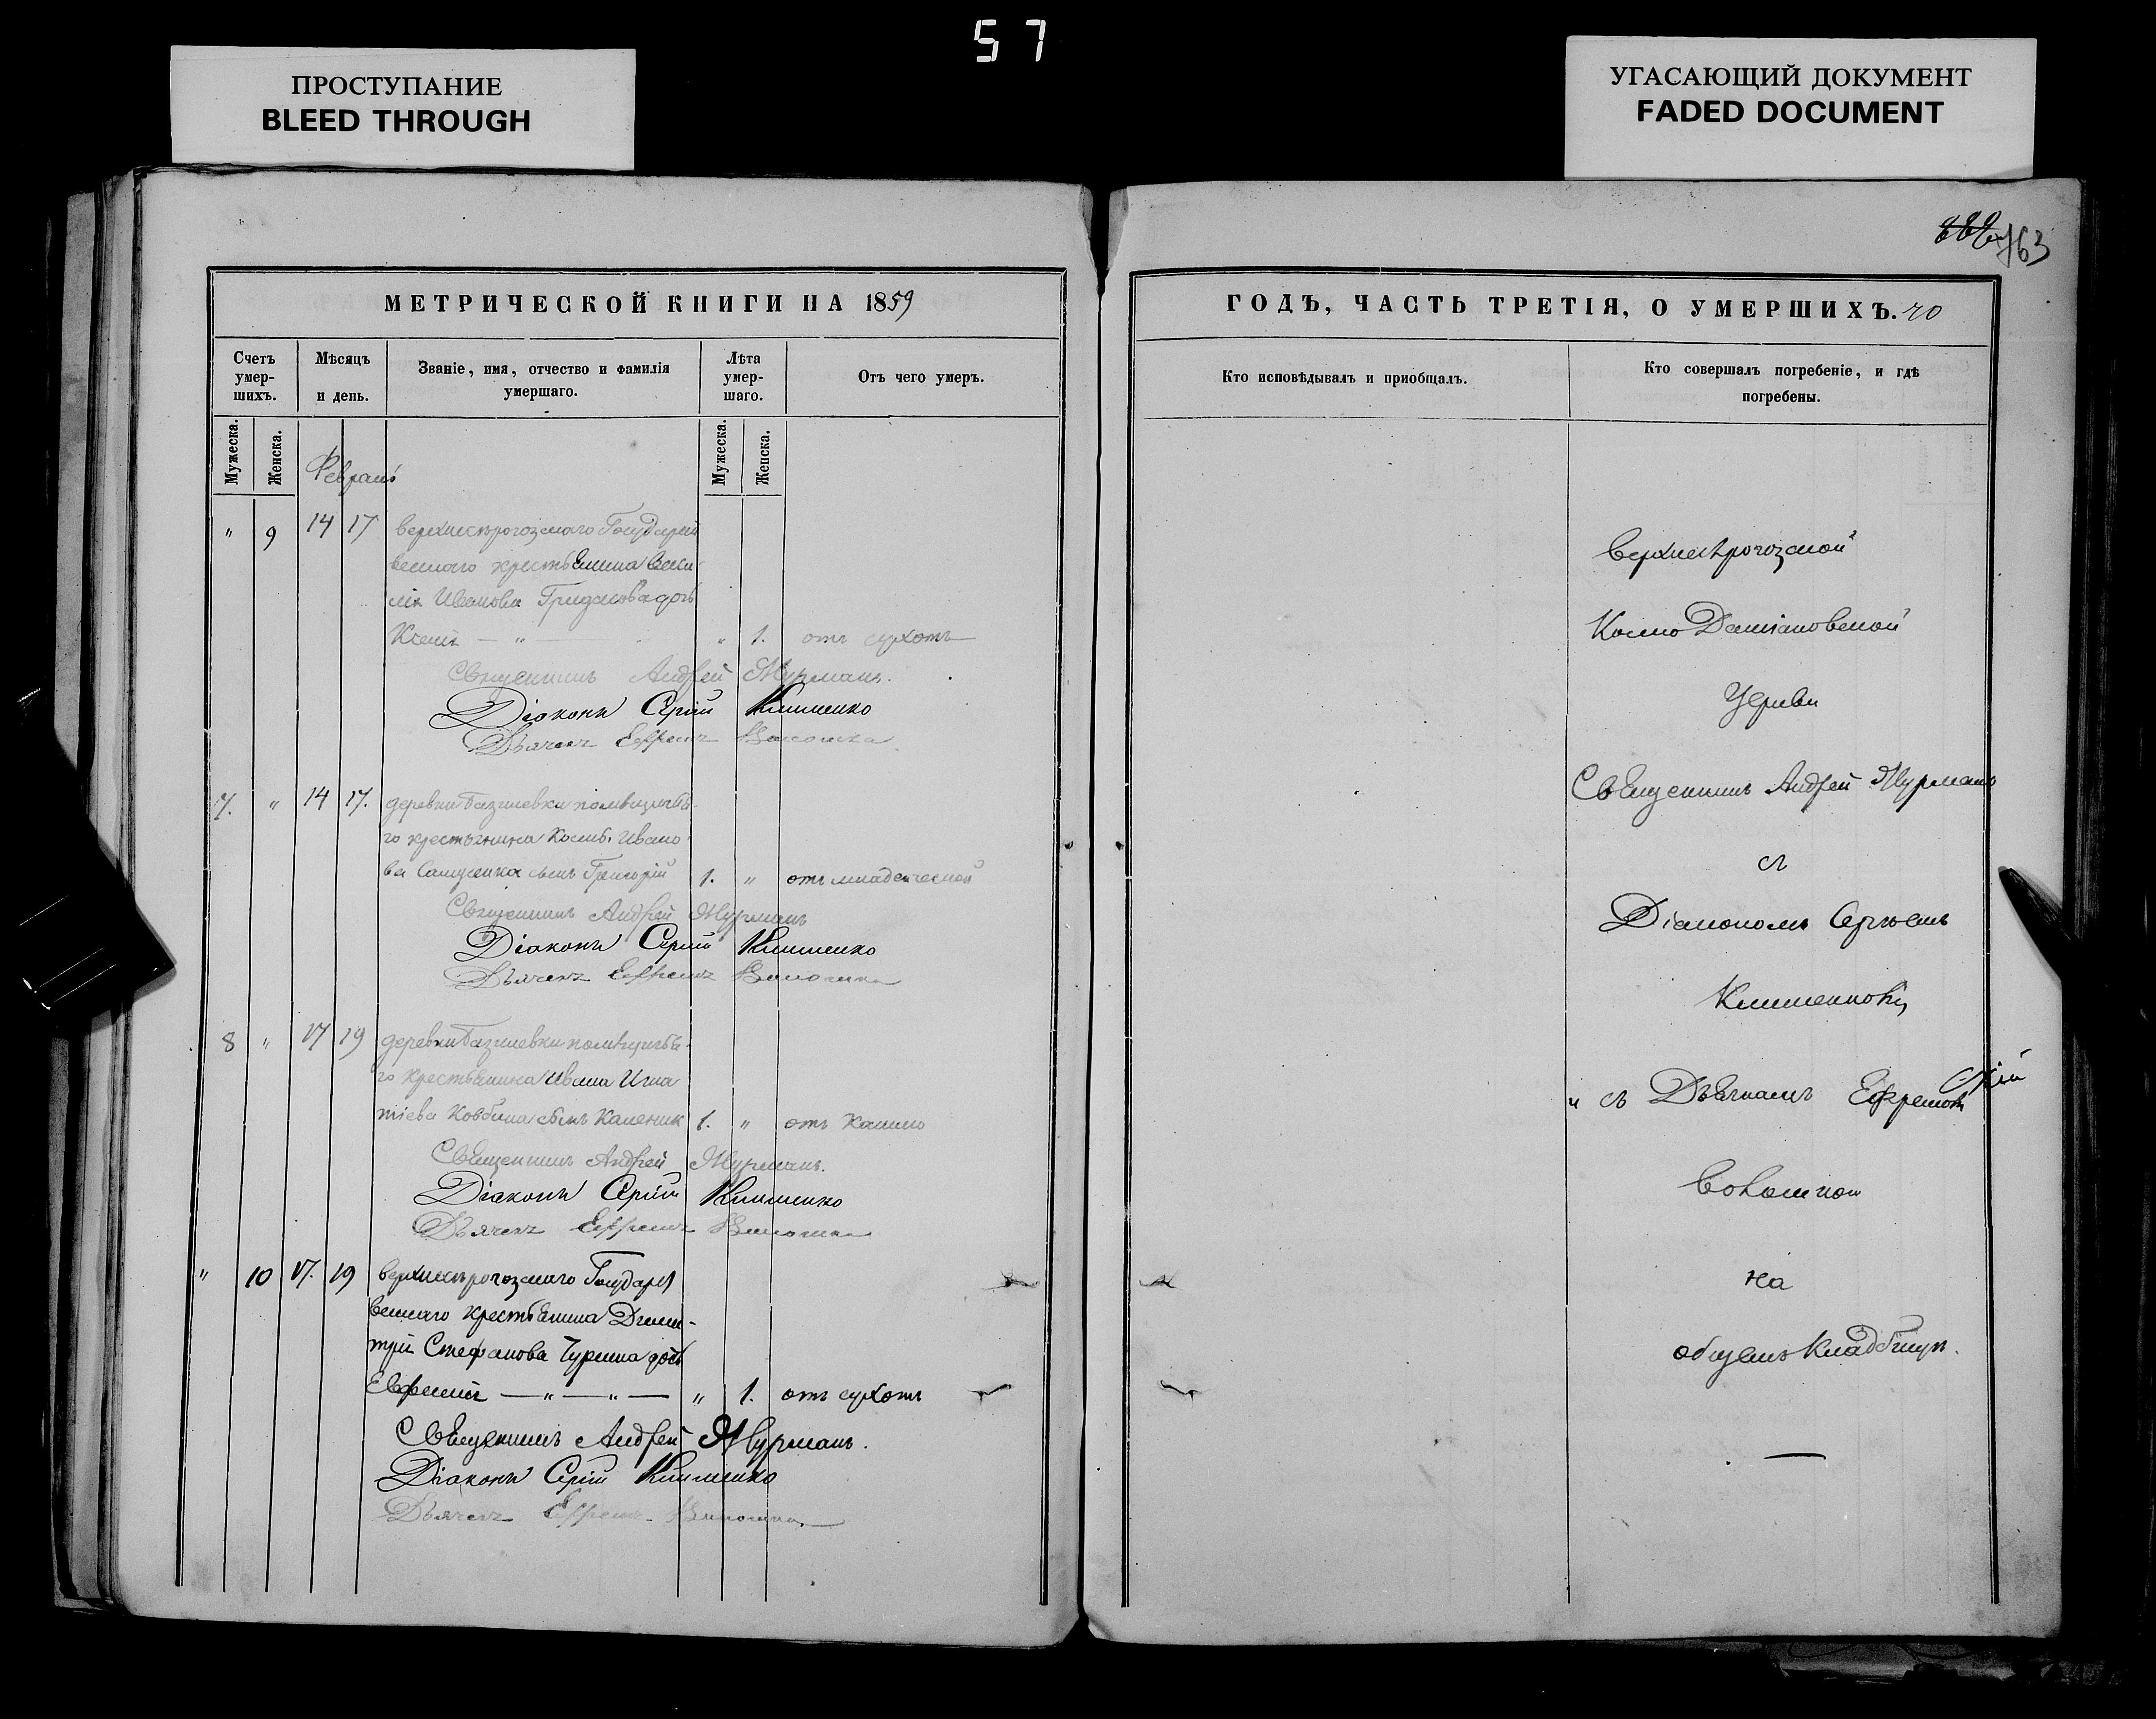 57
ПРОСТУПАНИЕ
BLEED THROUGH
УГАСАЮЩИЙ ДОКУМЕНТ
FADED DOCUMENT
763
МЕТРИЧЕСКОЙ КНИГИ НА 1859
Счетъ умер-шихъ.
Мѣсяцъ и день.
Званіе, имя, отчество и фамилія умершаго.
Лѣта умер-шаго.
Отъ чего умеръ.
Мужеска.
Женска.
Мужеска.
Женска.
Февраль
" 9 14 17 верхнерогозскаго Государст
веннаго крестьянина Васи-
лія Иванова дочь
" 1. отъ сухотъ
Священникъ Андрей Журманъ.
Діаконъ Сергій Клименко
Дьячекъ Ефремъ Волошка
7. " 14 17. деревни помѣщичья-
го крестьянина Косьмы Ивано-
ва сынъ Григорій 1. " отъ младенческой
Священникъ Андрей Журманъ
Діаконъ Сергій Клименко
Дьячекъ Ефремъ Волошка
8 " 17 19 деревни помѣщичья-
го крестьянина Ивана Игна
тіева сынъ Каленик 1. " отъ кашлю
Священникъ Андрей Журманъ.
Діаконъ Сергій Клименко
Дьячекъ Ефремъ Волошка
" 10 17. 19 верхнерогозскаго Государст
веннаго крестьянина Дими-
трія Стефанова дочь
Евфимія — " — " — " 1. отъ сухотъ
Священникъ Андрей Журманъ.
Діаконъ Сергій Клименко
Дьячекъ Ефремъ Волошка
ГОДЪ, ЧАСТЬ ТРЕТІЯ, О УМЕРШИХЪ.
Кто исповѣдывалъ и пріобщалъ.
Кто совершалъ погребеніе, и гдѣ погребены.
Верхнерогозской
Космо Даміановской
Церкви
Священникъ Андрей Журманъ
съ
Діакономъ Сергіемъ
Клименковъ
и съ Дьячкомъ Ефремомъ
Волошкою
на
общемъ кладбищѣ.